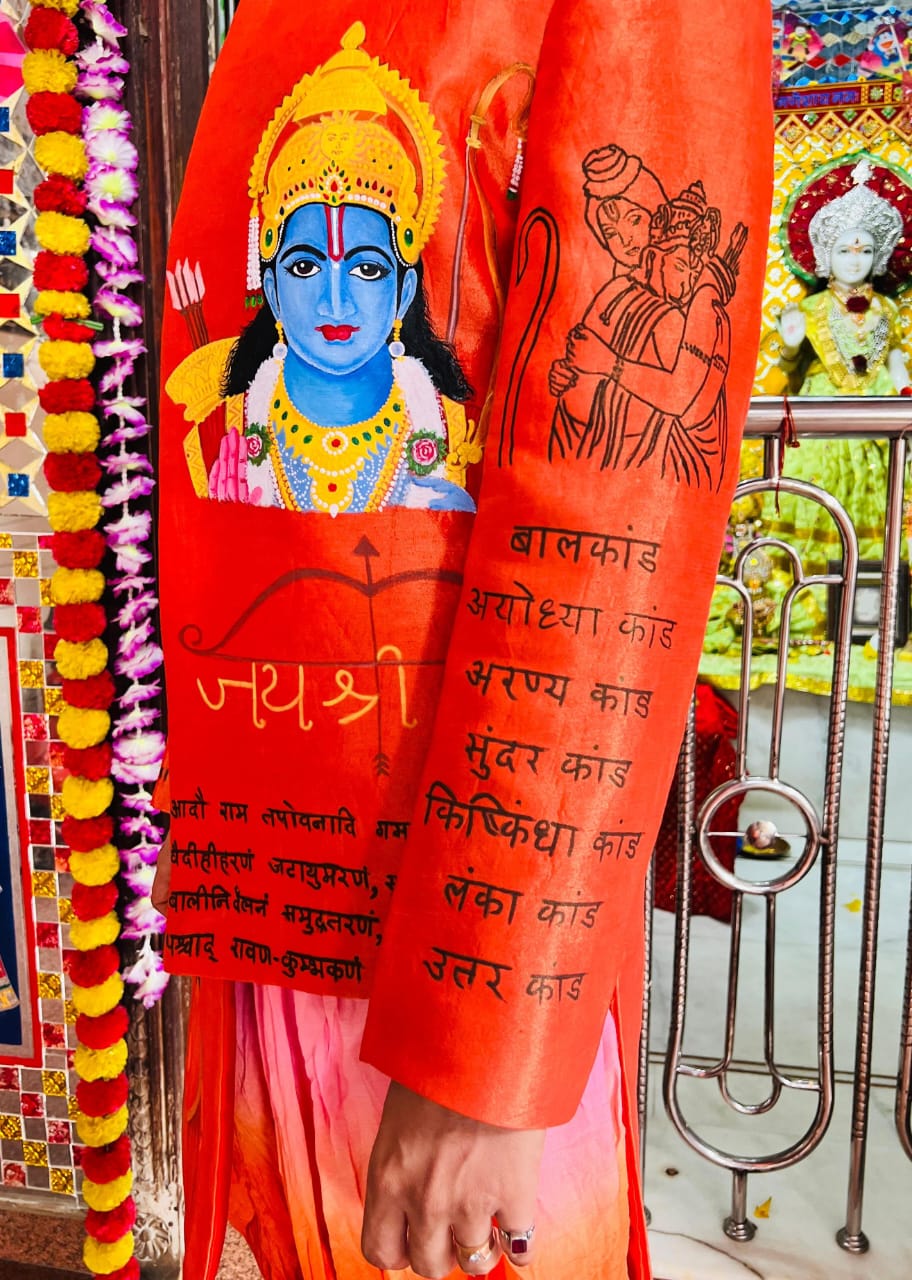 गणेशाय नमः
जय श्री
आदौ राम तपोवनादि गम
वैदीहीहरणं जटायुमरणं,
बालीनिर्दलनं समुद्रतरणं,
पश्चाद् रावण-कुम्भकर्ण
बालकांड
अयोध्या कांड
अरण्य कांड
सुंदर कांड
किष्किंधा कांड
लंका कांड
उतर कांड